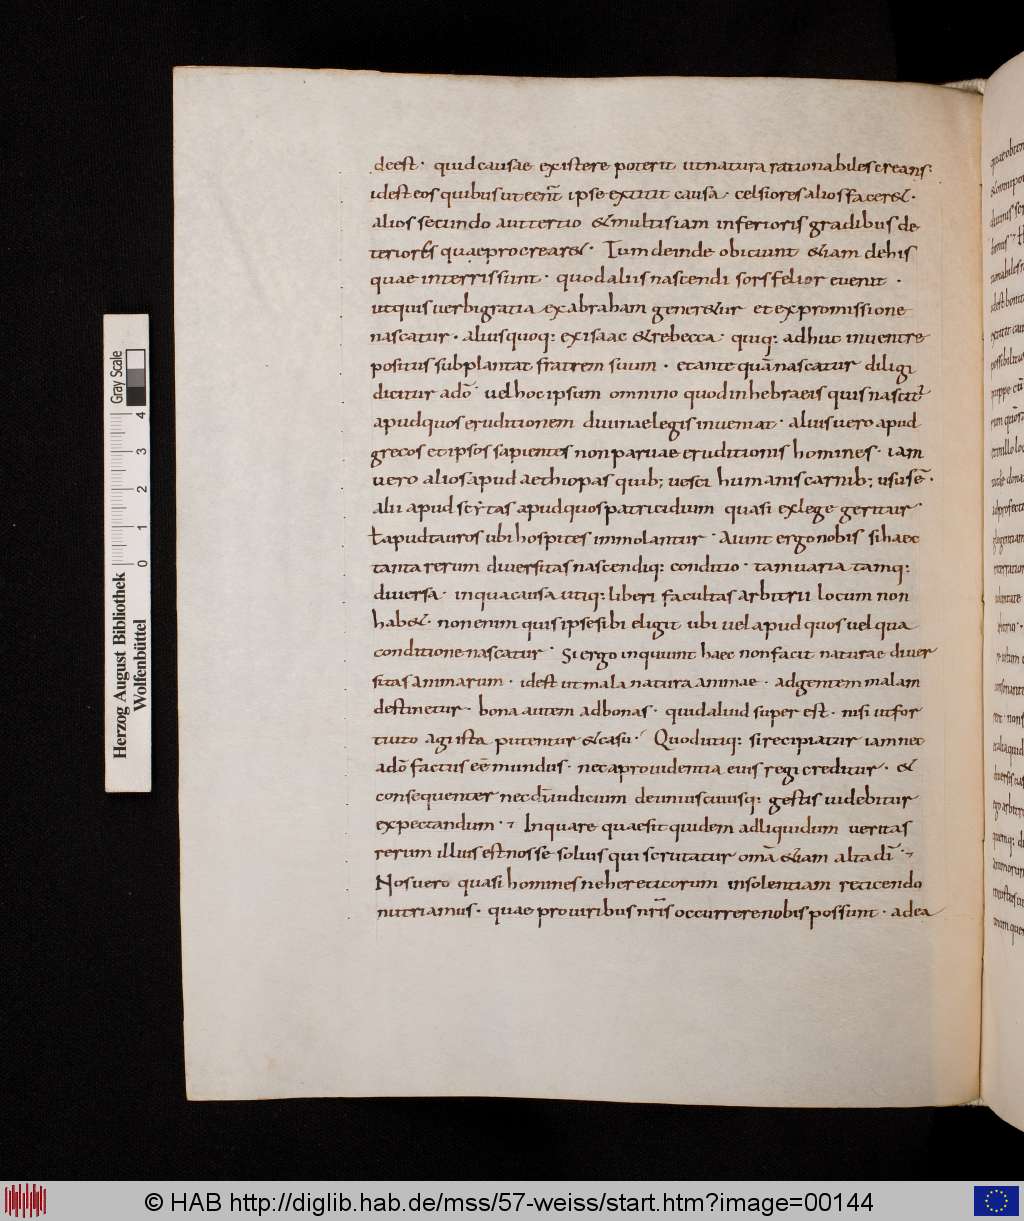 deest · quid causae existere poterit ut natura rationabiles creans ·
idest eos quibus ut eēnt ipse extitit causa · celsiores alios facer& ·
alios secundo aut tertio & multis iam inferioris gradibus de
teriores quae procrear& · Tum deinde obiciunt &iam de his
quae in terris sunt · quod aliis nascendi sors felior evenit ·
ut quis verbi gratia ex abraham gener&ur et ex promissione
nascatur · alius quoq: ex isaac & rebecca · quiq: adhuc in ventre
positus subplantat fratrem suum · et ante quā nascatur diligi
dicitur a dō · vel hoc ipsum omnino quod in hebraeis quis nascitur
apud quos eruditionem divinae legis inveniat · alius vero apud
grecos et ipsos sapientes non parvae eruditionis homines · iam
vero alios apud aethiopas quib; vesci humanis carnib; usus ē ·
alii apud scytas apud quos patricidium quasi ex lege geritur
ł apud tauros ubi hospites immolantur · Aiunt ergo nobis si haec
tanta rerum diversitas nascendiq: conditio · tam varia tamq:
diversa · in qua causa utiq: liberi facultas arbitrii locum non
hab& · non enim quis ipse sibi eligit ubi vel apud quos vel qua
conditione nascatur · Si ergo inquiunt haec non facit naturae diver
sitas animarum · idest ut mala natura animae · ad gentem malam
destinetur · bona autem ad bonas · quid aliud super est · nisi ut for
tuito agi ista putentur & casu · Quod utiq: si recipiatur iam nec
a dō factus eē mundus · nec a providentia eius regi creditur · &
consequenter nec dī iudicium de uniuscuiusq: gestis videbitur
expectandum · In qua re quae sit quidem ad liquidum veritas
rerum illius est nosse solius qui scrutatur omā &iam alta dī ·
Nos vero quasi homines ne hereticorum insolentiam reticendo
nutriamus · quae pro viribus nrīs occurrere nobis possunt · ad ea
Herzog August Bibliothek
Wolfenbüttel
0 1 2 3 4
Gray Scale
© HAB http://diglib.hab.de/mss/57-weiss/start.htm?image=00144